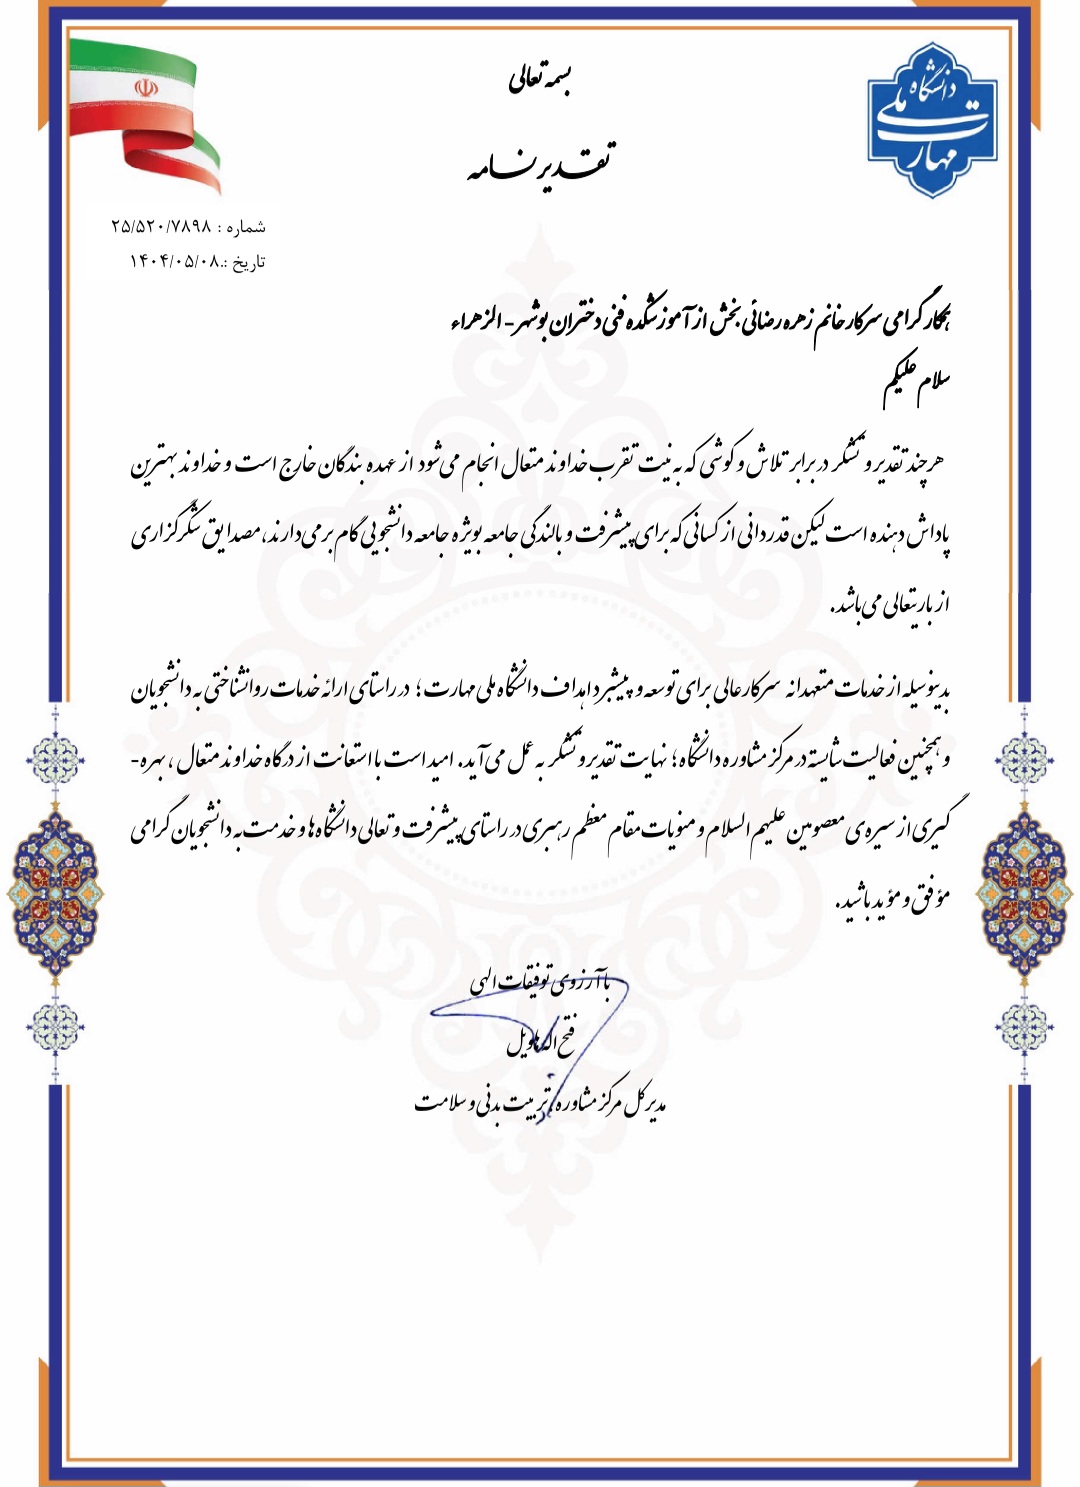 بسمه تعالی
دانشگاه ملی مهارت
تقدیرنامه
شماره : ۲۵/۵۲۰/۷۸۹۸
تاریخ :.۱۴۰۴/۰۵/۰۸
همکار گرامی سرکار خانم زهره رضائی بخش از آموزشکده فنی دختران بوشهر - الزهراء
سلام علیکم
هرچند تقدیر و تشکر در برابر تلاش و کوشی که به نیت تقرب خداوند متعال انجام می‌شود از عهده بندگان خارج است و خداوند بهترین
پاداش دهنده است لیکن قدردانی از کسانی که برای پیشرفت و بالندگی جامعه بویژه جامعه دانشجویی گام برمی‌دارند، مصدایق شکرگزاری
از باریتعالی می‌باشد.
بدینوسیله از خدمات متعهدانه سرکارعالی برای توسعه و پیشبرد اهداف دانشگاه ملی مهارت؛ در راستای ارائه خدمات روانشناختی به دانشجویان
و همچنین فعالیت شایسته در مرکز مشاوره دانشگاه؛ نهایت تقدیر و تشکر به عمل می‌آید. امید است با استعانت از درگاه خداوند متعال، بهره-
گیری از سیره‌ی معصومین علیهم السلام و منویات مقام معظم رهبری در راستای پیشرفت و تعالی دانشگاه ها و خدمت به دانشجویان گرامی
مؤفق و مؤید باشید.
با آرزوی توفیقات الهی
فتح اله هاویل
مدیرکل مرکز مشاوره، تربیت بدنی و سلامت